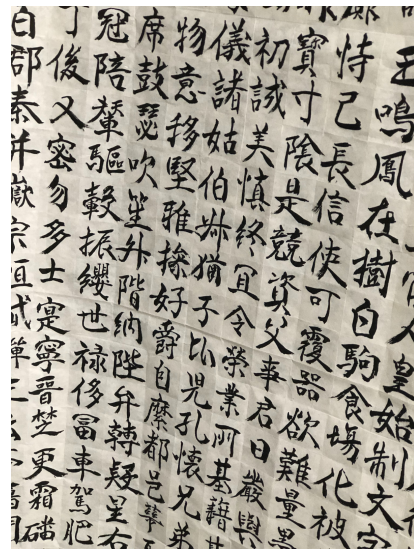 人皇始制文字
王鳴鳳在樹白駒食場化被
恃己長信使可覆器欲難量墨
寶寸陰是競資父事君曰嚴與
初誠美慎終宜令榮業所基籍甚
儀諸姑伯叔猶子比兒孔懷兄弟
物意移堅雅操好爵自縻都邑華
席鼓瑟吹笙升階納陛弁轉疑星右
冠陪輦驅轂振纓世祿侈富車駕肥
密勿多士寔寧晉楚更
郡秦并嶽宗恒